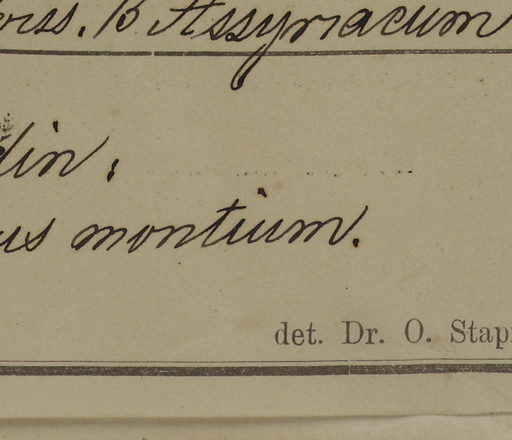 oiss. B Assyriacum
din;
us montium.
det. Dr. O. Stapf